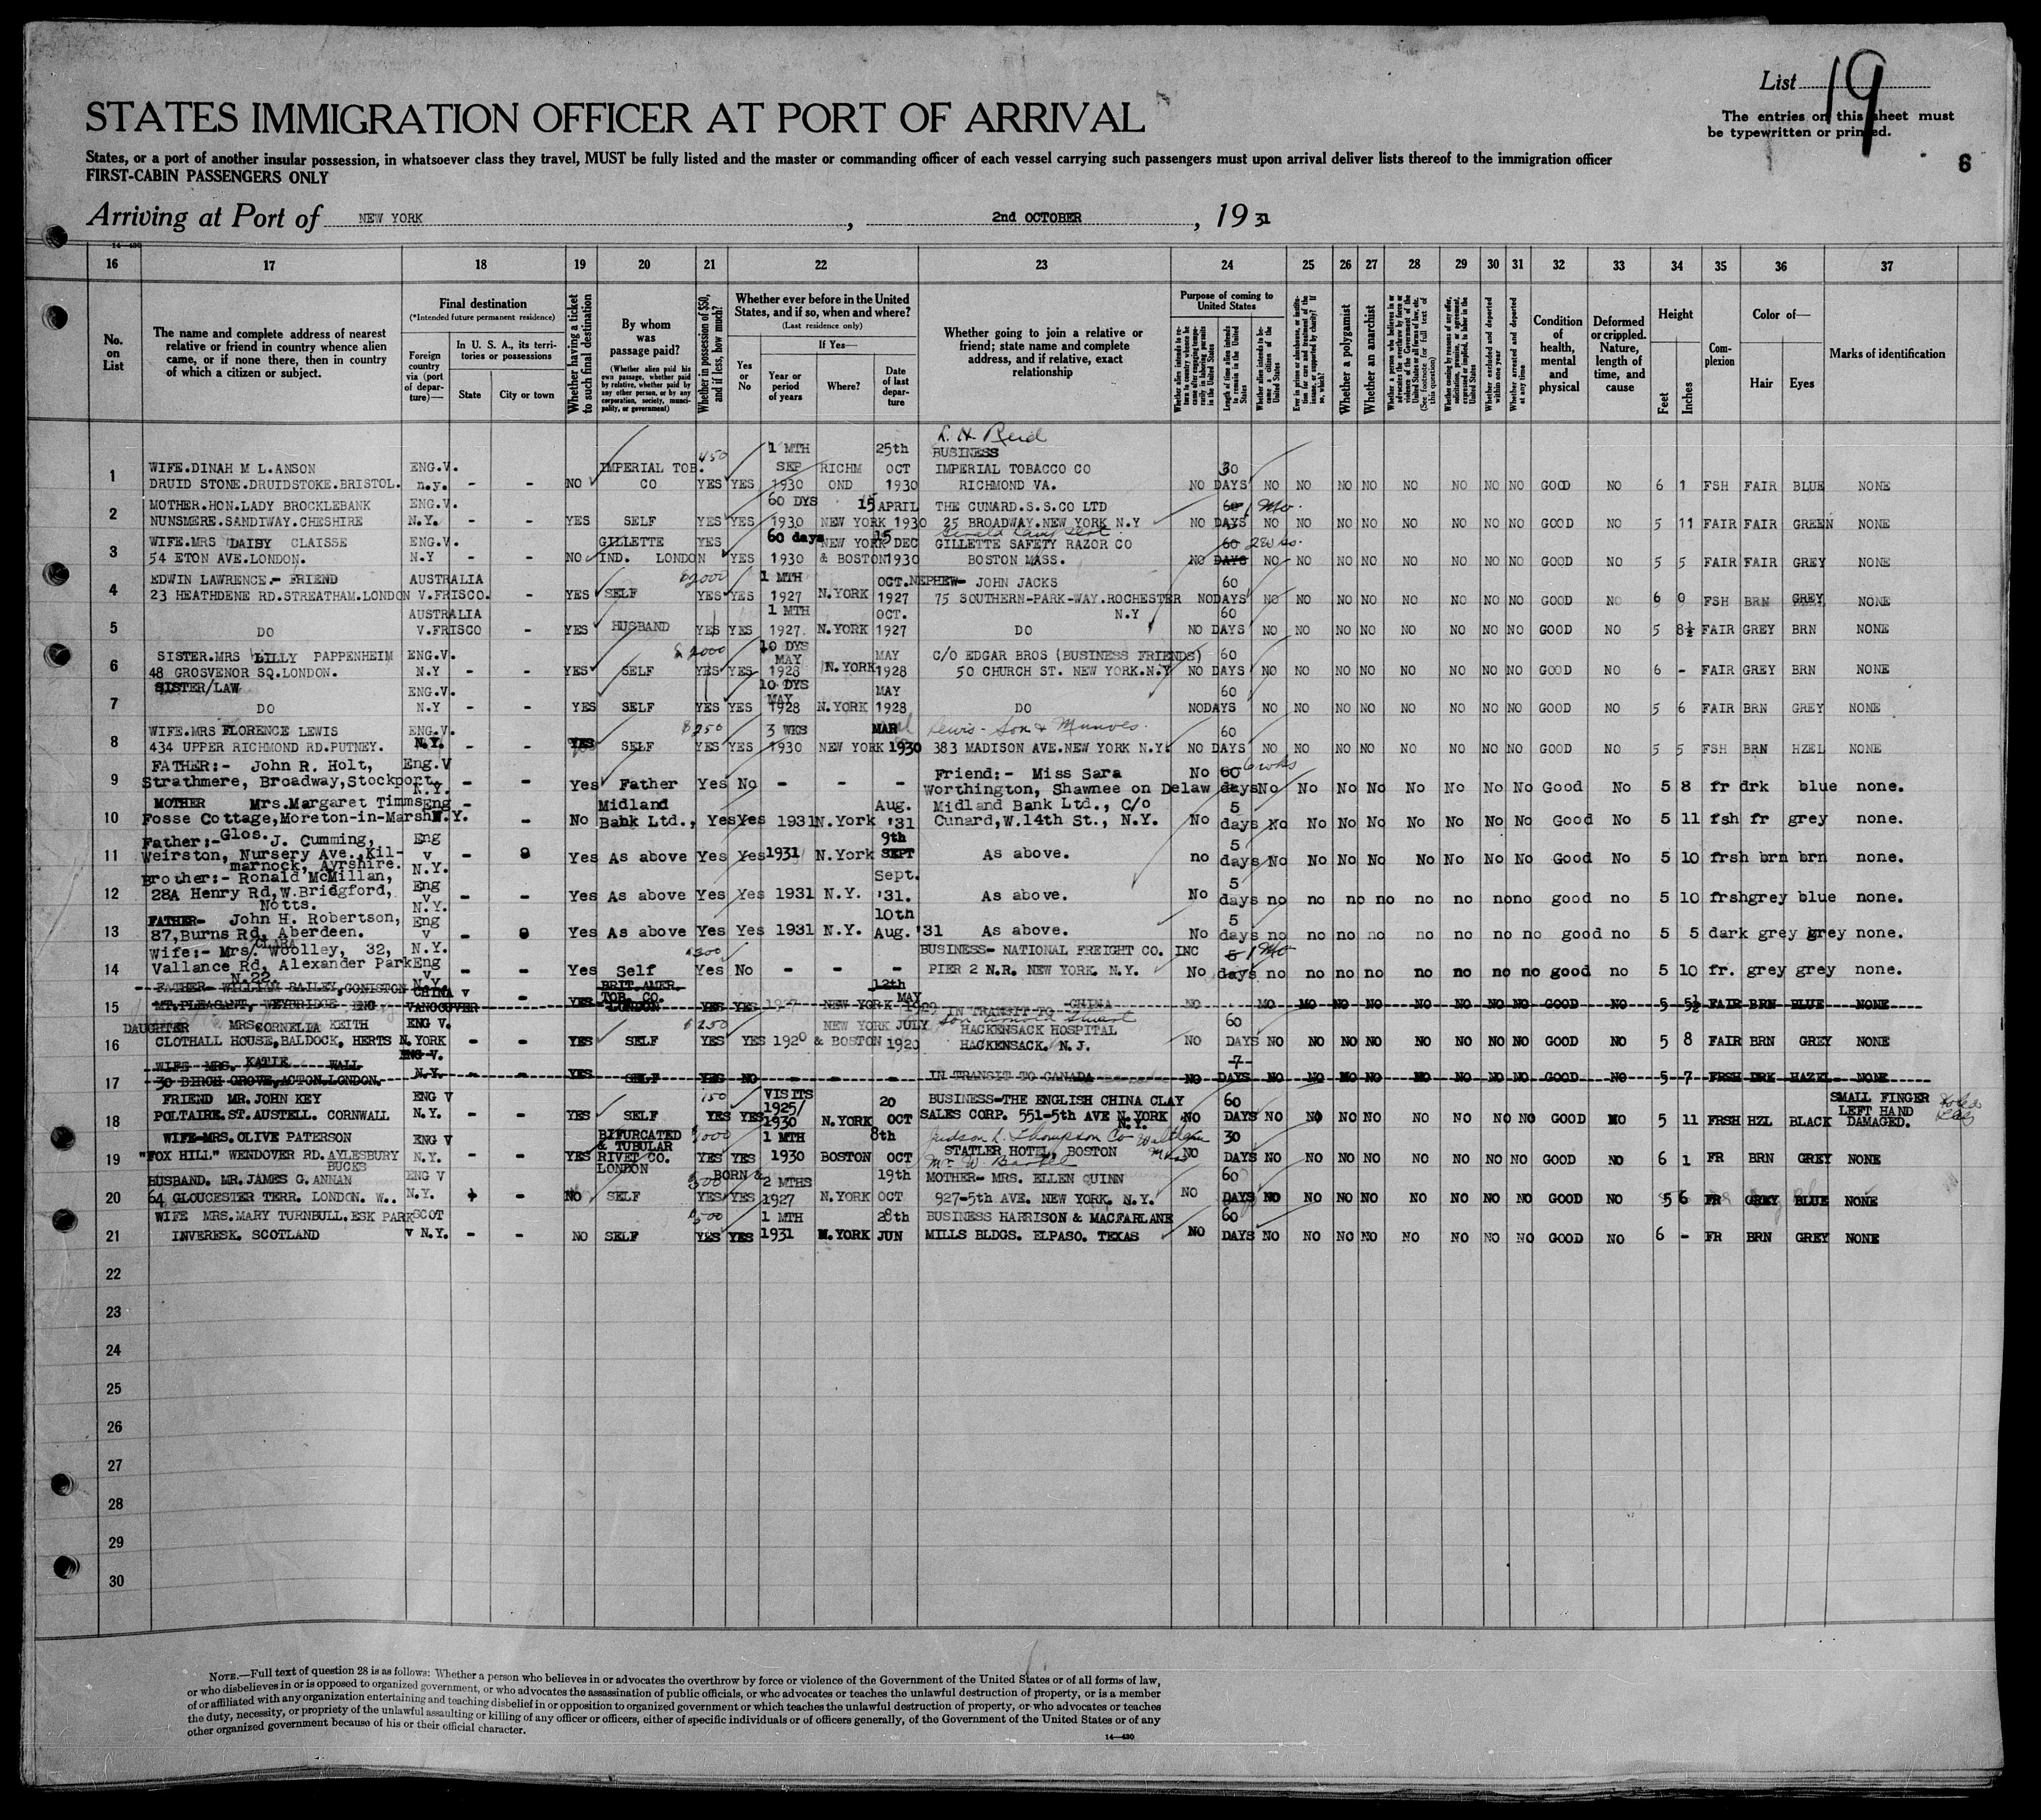 List 19
The entries on this sheet must
be typewritten or printed.
6
STATES IMMIGRATION OFFICER AT PORT OF ARRIVAL
States, or a port of another insular possession, in whatsoever class they travel, MUST be fully listed and the master or commanding officer of each vessel carrying such passengers must upon arrival deliver lists thereof to the immigration officer
FIRST-CABIN PASSENGERS ONLY
Arriving at Port of NEW YORK, 2nd OCTOBER, 19 31
14-430
16 17 18 19 20 21 22 23 24 25 26 27 28 29 30 31 32 33 34 35 36 37
No. on List
The name and complete address of nearest relative or friend in country whence alien came, or if none there, then in country of which a citizen or subject.
Final destination
(*Intended future permanent residence)
Foreign country via (port of departure)—
In U. S. A., its territories or possessions
State
City or town
Whether having a ticket to such final destination
By whom was passage paid?
(Whether alien paid his own passage, whether paid by relative, whether paid by any other person, or by any corporation, society, municipality, or government)
Whether in possession of $50, and if less, how much?
Whether ever before in the United States, and if so, when and where?
(Last residence only)
Yes or No
If Yes—
Year or period of years
Where?
Date of last departure
Whether going to join a relative or friend; state name and complete address, and if relative, exact relationship
Purpose of coming to United States
Whether alien intends to return to country whence he came after engaging temporarily in laboring pursuits in the United States
Length of time alien intends to remain in the United States
Whether alien intends to become a citizen of the United States
Ever in prison or almshouse, or institution for care and treatment of the insane, or supported by charity? If so, which?
Whether a polygamist
Whether an anarchist
Whether a person who believes in or advocates the overthrow by force or violence of the Government of the United States or all forms of law, etc. (See footnote for full text of this question)
Whether coming by reason of any offer, solicitation, promise, or agreement, expressed or implied, to labor in the United States
Whether excluded and deported within one year
Whether arrested and deported at any time
Condition of health, mental and physical
Deformed or crippled. Nature, length of time, and cause
Height
Feet
Inches
Complexion
Color of—
Hair
Eyes
Marks of identification
L. H. Reid
450 1 MTH 25th BUSINESS
WIFE.DINAH M L.ANSON ENG.V. IMPERIAL TOB. SEP RICHM OCT IMPERIAL TOBACCO CO 30
1 DRUID STONE.DRUIDSTOKE.BRISTOL. n.y. - - NO CO YES YES 1930 OND 1930 RICHMOND VA. NO DAYS NO NO NO NO NO NO NO NO GOOD NO 6 1 FSH FAIR BLUE NONE
MOTHER.HON.LADY BROCKLEBANK ENG.V. 60 DYS 15 APRIL THE CUNARD.S.S.CO LTD 60 1 Mo.
2 NUNSMERE.SANDIWAY.CHESHIRE N.Y. - - YES SELF YES YES 1930 NEW YORK 1930 25 BROADWAY.NEW YORK N.Y NO DAYS NO NO NO NO NO NO NO NO GOOD NO 5 11 FAIR FAIR GREEN NONE
WIFE.MRS DAISY CLAISSE ENG.V. GILLETTE YES 60 days NEW YORK 15 DEC GILLETTE SAFETY RAZOR CO 60
3 54 ETON AVE.LONDON. N.Y - - NO IND. LONDON YES 1930 & BOSTON 1930 BOSTON MASS. NO DAYS NO NO NO NO NO NO NO NO GOOD NO 5 5 FAIR FAIR GREY NONE
EDWIN LAWRENCE.- FRIEND AUSTRALIA $2000 1 MTH OCT. NEPHEW- JOHN JACKS 60
4 23 HEATHDENE RD.STREATHAM.LONDON V.FRISCO. - YES SELF YES YES 1927 N.YORK 1927 75 SOUTHERN-PARK-WAY.ROCHESTER NO DAYS NO NO NO NO NO NO NO NO GOOD NO 6 0 FSH BRN GREY NONE
AUSTRALIA 1 MTH OCT. N.Y 60
5 DO V.FRISCO - YES HUSBAND YES YES 1927 N.YORK 1927 DO NO DAYS NO NO NO NO NO NO NO NO GOOD NO 5 8½ FAIR GREY BRN NONE
SISTER.MRS LILLY PAPPENHEIM ENG.V. $2000 10 DYS MAY MAY C/O EDGAR BROS (BUSINESS FRIENDS) 60
6 48 GROSVENOR SQ.LONDON. N.Y - - YES SELF YES YES 1928 N.YORK 1928 50 CHURCH ST. NEW YORK.N.Y NO DAYS NO NO NO NO NO NO NO NO GOOD NO 6 - FAIR GREY BRN NONE
SISTER/LAW ENG.V. 10 DYS MAY MAY 60
7 DO N.Y - - YES SELF YES YES 1928 N.YORK 1928 DO NO DAYS NO NO NO NO NO NO NO NO GOOD NO 5 6 FAIR BRN GREY NONE
WIFE.MRS FLORENCE LEWIS ENG.V. $250 3 WKS MAR Lewis - Son & 60
8 434 UPPER RICHMOND RD.PUTNEY. N.Y. - - YES SELF YES YES 1930 NEW YORK 1930 383 MADISON AVE.NEW YORK N.Y. NO DAYS NO NO NO NO NO NO NO NO GOOD NO 5 5 FSH BRN HZEL NONE
FATHER:- John R. Holt, Eng.V Friend:- Miss Sara No 60 6 wks
9 Strathmere, Broadway,Stockport. N.Y. - - Yes Father Yes No - - - Worthington, Shawnee on Delaw days No No No No No No No No Good No 5 8 fr drk blue none.
MOTHER Mrs.Margaret Timms Eng Midland Aug. Midland Bank Ltd., C/o 5
10 Fosse Cottage,Moreton-in-Marsh N.Y. - No Bank Ltd., Yes Yes 1931 N.York '31 Cunard,W.14th St., N.Y. No days No No No No No No No No Good No 5 11 fsh fr grey none.
Glos.
Father:- J. Cumming, Eng 9th 5
11 Weirston, Nursery Ave.,Kil- v - Yes As above Yes Yes 1931 N.York SEPT As above. no days No No No No No No No No Good No 5 10 frsh brn brn none.
marnock, Ayrshire. N.Y.
Brother:- Ronald McMillan, Eng Sept. 5
12 28A Henry Rd,W.Bridgford, v - - Yes As above Yes Yes 1931 N.Y. '31. As above. No days no no no no no no no no good no 5 10 frsh grey blue none.
Notts. N.Y.
FATHER- John H. Robertson, Eng 10th 5
13 87,Burns Rd, Aberdeen. v - Yes As above Yes Yes 1931 N.Y. Aug. '31 As above. No days no no no no no no no no good no 5 5 dark grey grey none.
N.Y.
CLARA
Wife:- Mrs. Woolley, 32, Eng BUSINESS- NATIONAL FREIGHT CO. INC 5 1 Mo
14 Vallance Rd, Alexander Park v. - - Yes Self Yes No - - - PIER 2 N.R. NEW YORK. N.Y. No days no no no no no no no no good no 5 10 fr. grey grey none.
N.22 N.Y.
FATHER- WILLIAM BAILEY,CONISTON CHINA v BRIT.AMER. TOB. CO. 12th MAY
15 MT.PLEASANT, WEYBRIDGE ENG VANCOUVER YES LONDON YES YES NEW YORK 1929 IN TRANSIT TO CHINA NO NO NO NO NO NO NO NO NO GOOD NO 5 5½ FAIR BRN BLUE NONE
DAUGHTER MRS CORNELIA KEITH ENG V. $250 NEW YORK JULY Son Arnold Stuart HACKENSACK HOSPITAL 60
16 CLOTHALL HOUSE,BALDOCK, HERTS N.YORK - - YES SELF YES YES 1920 & BOSTON 1920 HACKENSACK. N.J. NO DAYS NO NO NO NO NO NO NO NO GOOD NO 5 8 FAIR BRN GREY NONE
WIFE MRS. KATIE WALL ENG V. 7
17 30 BIRCH GROVE,ACTON.LONDON. N.Y. YES SELF YES NO IN TRANSIT TO CANADA NO DAYS NO NO NO NO NO NO NO NO GOOD NO 5 7 FRSH DRK HAZEL NONE
FRIEND MR. JOHN KEY ENG V 150 VISITS 1925/ 20 BUSINESS-THE ENGLISH CHINA CLAY 60 SMALL FINGER LEFT HAND
18 POLTAIRE.ST.AUSTELL. CORNWALL N.Y. - - YES SELF YES YES 1930 N.YORK OCT SALES CORP. 551-5th AVE N.YORK N.Y. NO DAYS NO NO NO NO NO NO NO NO GOOD NO 5 11 FRSH HZL BLACK DAMAGED.
WIFE-MRS. OLIVE PATERSON ENG V BIFURCATED & TUBULAR 1000 1 MTH 8th Judson L. Thompson Co Waltham Mass 30
19 "FOX HILL" WENDOVER RD. AYLESBURY BUCKS N.Y. - - YES RIVET CO. LONDON YES YES 1930 BOSTON OCT STATLER HOTEL, BOSTON NO DAYS NO NO NO NO NO NO NO NO GOOD NO 6 1 FR BRN GREY NONE
HUSBAND. MR. JAMES G. ANNAN ENG V $500 BORN & 2 MTHS 19th MOTHER- MRS. ELLEN QUINN 60
20 64 GLOUCESTER TERR. LONDON. W.. N.Y. - - NO SELF YES YES 1927 N.YORK OCT 927-5th AVE. NEW YORK. N.Y. NO DAYS NO NO NO NO NO NO NO NO GOOD NO 5 6 FR GREY BLUE NONE
WIFE MRS.MARY TURNBULL.ESK PARK SCOT $500 1 MTH 28th BUSINESS HARRISON & MACFARLANE 60
21 INVERESK. SCOTLAND v N.Y. - - NO SELF YES YES 1931 N.YORK JUN MILLS BLDGS. ELPASO. TEXAS NO DAYS NO NO NO NO NO NO NO NO GOOD NO 6 - FR BRN GREY NONE
22
23
24
25
26
27
28
29
30
NOTE.—Full text of question 28 is as follows: Whether a person who believes in or advocates the overthrow by force or violence of the Government of the United States or of all forms of law,
or who disbelieves in or is opposed to organized government, or who advocates the assassination of public officials, or who advocates or teaches the unlawful destruction of property, or is a member
of or affiliated with any organization entertaining and teaching disbelief in or opposition to organized government or which teaches the unlawful destruction of property, or who advocates or teaches
the duty, necessity, or propriety of the unlawful assaulting or killing of any officer or officers, either of specific individuals or of officers generally, of the Government of the United States or of any
other organized government because of his or their official character.
14-430